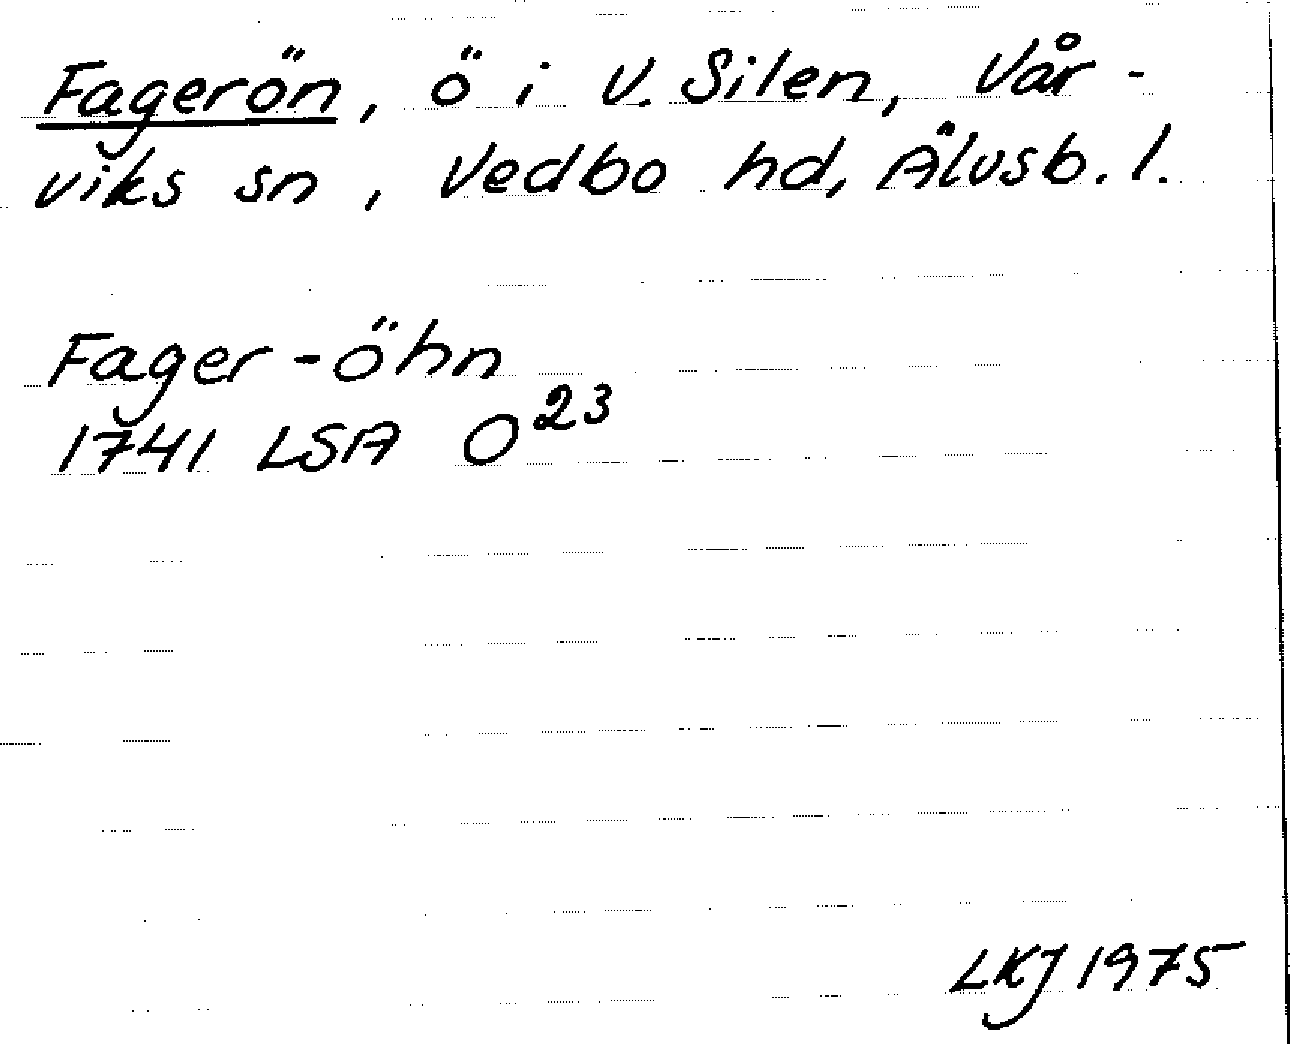 Fagerön, ö i V. Silen, Vår-
viks sn, Vedbo hd, Älvsb. l.
Fager-öhn
1741 LSA O²³
LKJ 1975